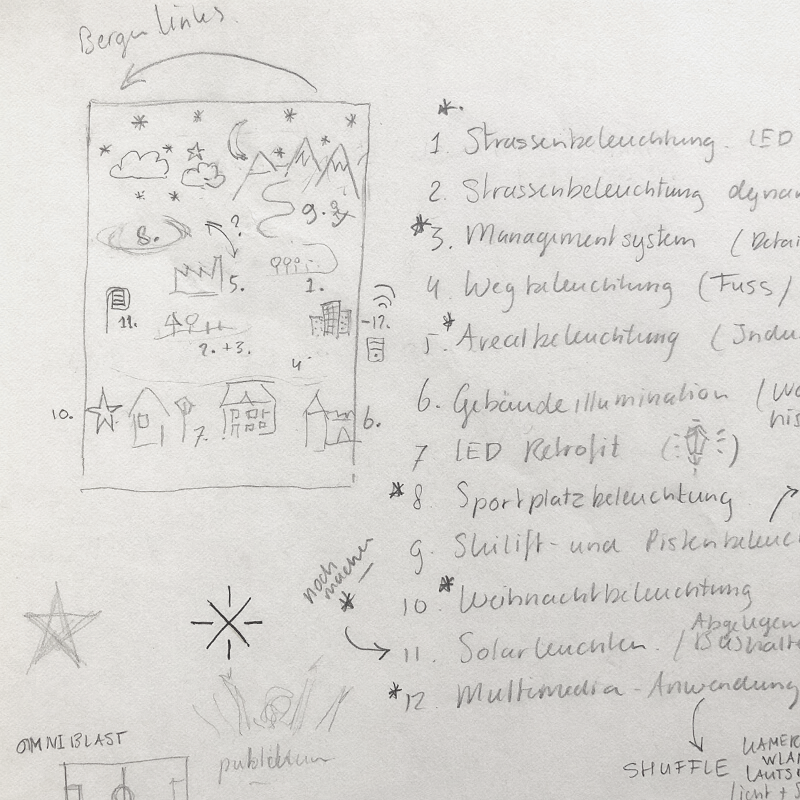 Berge links.
*.
1. Strassenbeleuchtung. LED
2. Strassenbeleuchtung dynam
*3. Managementsystem (Detai
4 Wegbeleuchtung (Fuss /
5.* Arealbeleuchtung (Indu
6. Gebäudeillumination (
his
7 LED Retrofit ( )
* 8 Sportplatzbeleuchtung
9. Skilift- und Pistenbeleuch
10* Weihnachtbeleuchtung
noch
machen
*
11. Solarleuchten. / Abgelegen
Bushalte
*12 Multimedia - Anwendung
SHUFFLE
KAMER
WLAN
LAUTS
licht + S
8.
?
9.
5.
1.
11.
2. + 3.
12.
4
10.
7.
6.
OMNIBLAST
publikum